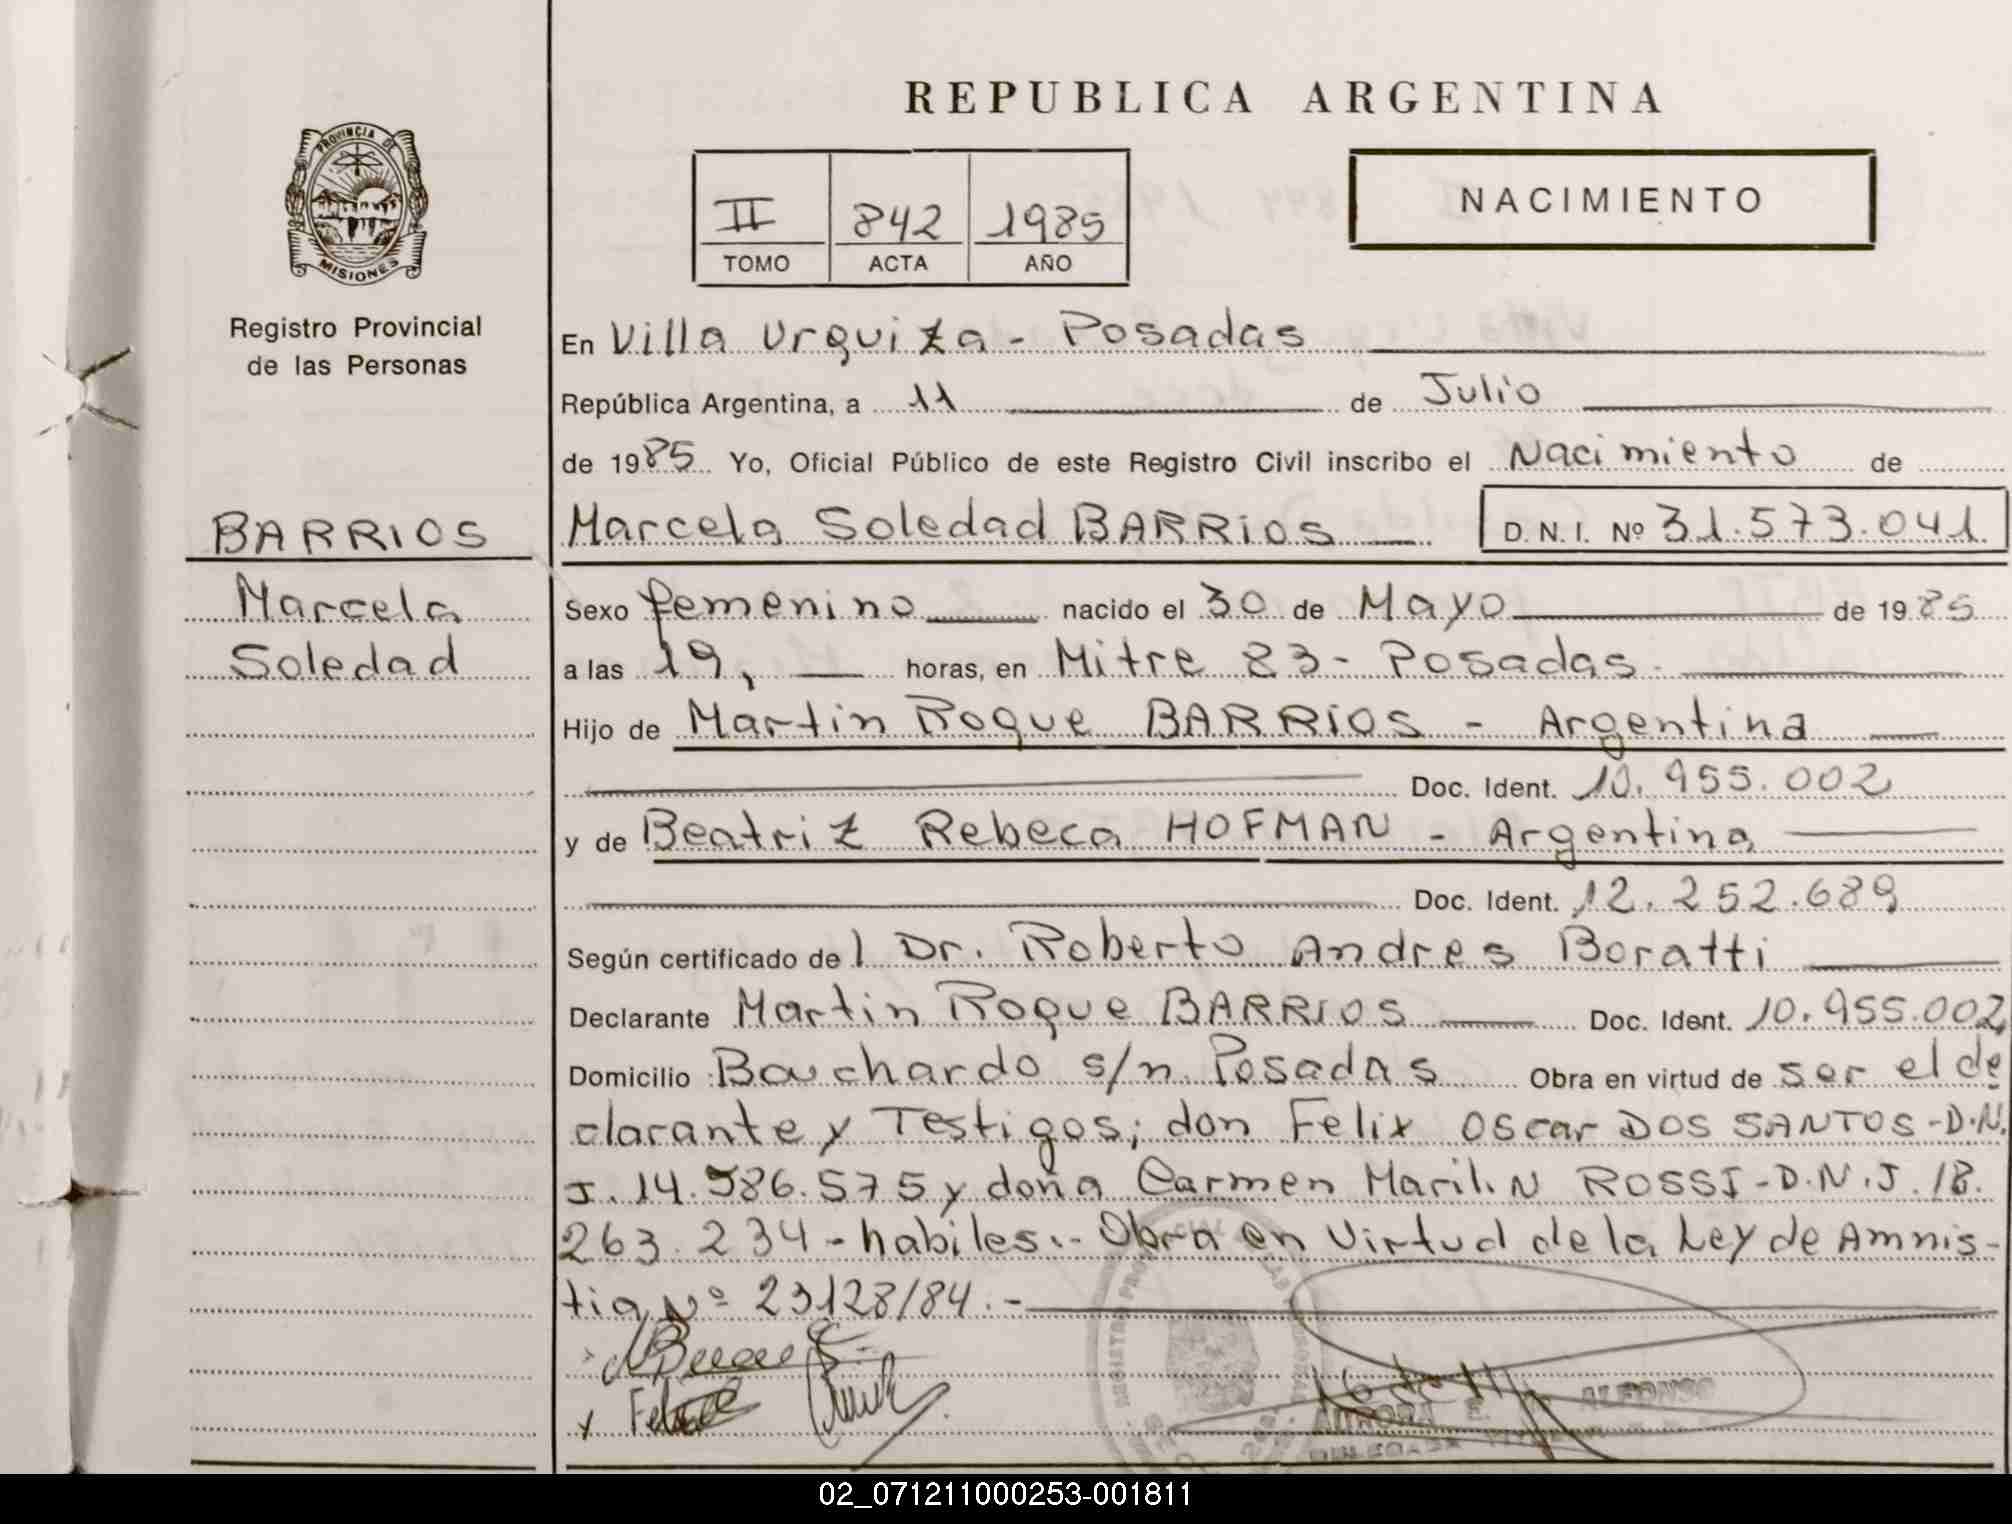 REPUBLICA ARGENTINA
PROVINCIA DE
MISIONES
Registro Provincial
de las Personas
II 842 1985
TOMO ACTA AÑO
NACIMIENTO
En Villa Urquiza - Posadas
República Argentina, a 11 de Julio
de 1985 Yo, Oficial Público de este Registro Civil inscribo el Nacimiento de
BARRIOS
Marcela
Soledad
Marcela Soledad BARRIOS D.N.I. Nº 31.573.041
Sexo femenino nacido el 30 de Mayo de 1985
a las 19, horas, en Mitre 83 - Posadas.
Hijo de Martin Roque BARRIOS - Argentina
Doc. Ident. 10.955.002
y de Beatriz Rebeca HOFMAN - Argentina
Doc. Ident. 12.252.689
Según certificado del Dr. Roberto Andres Boratti
Declarante Martin Roque BARRIOS Doc. Ident. 10.955.002
Domicilio Bouchardo s/n Posadas Obra en virtud de ser el de
clarante y Testigos; don Felix Oscar DOS SANTOS - D.N.
I. 14.986.575 y doña Carmen Marilin ROSSI - D.N.I. 18.
263.234 - habiles.- Obra en Virtud de la Ley de Amnis-
tia Nº 23128/84.-
ALFONSO
AURORA E.
02_071211000253-001811